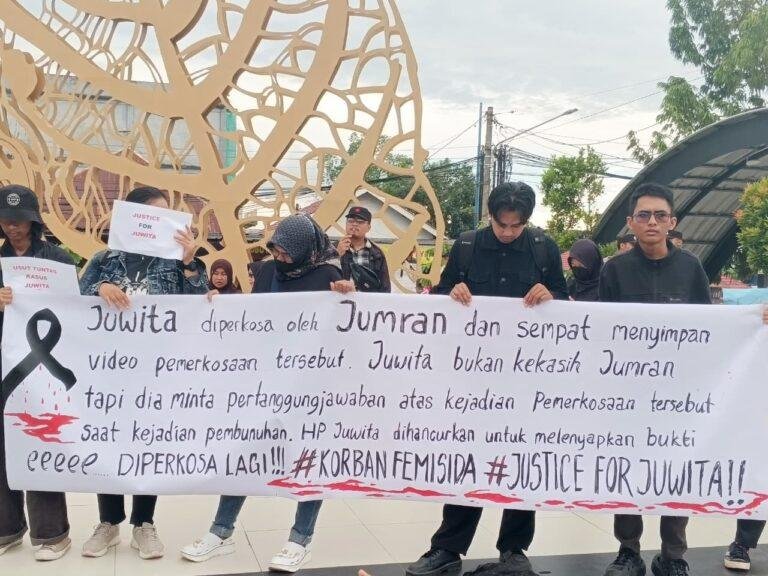 JUSTICE
FOR
JUWITA
USUT TUNTAS
KASUS
JUWITA
Juwita diperkosa oleh Jumran dan sempat menyimpan
video pemerkosaan tersebut. Juwita bukan kekasih Jumran
tapi dia minta pertanggungjawaban atas kejadian Pemerkosaan tersebut
saat kejadian pembunuhan. HP Juwita dihancurkan untuk melenyapkan bukti
eeeee..... DIPERKOSA LAGI!!! #KORBAN FEMISIDA #JUSTICE FOR JUWITA!!